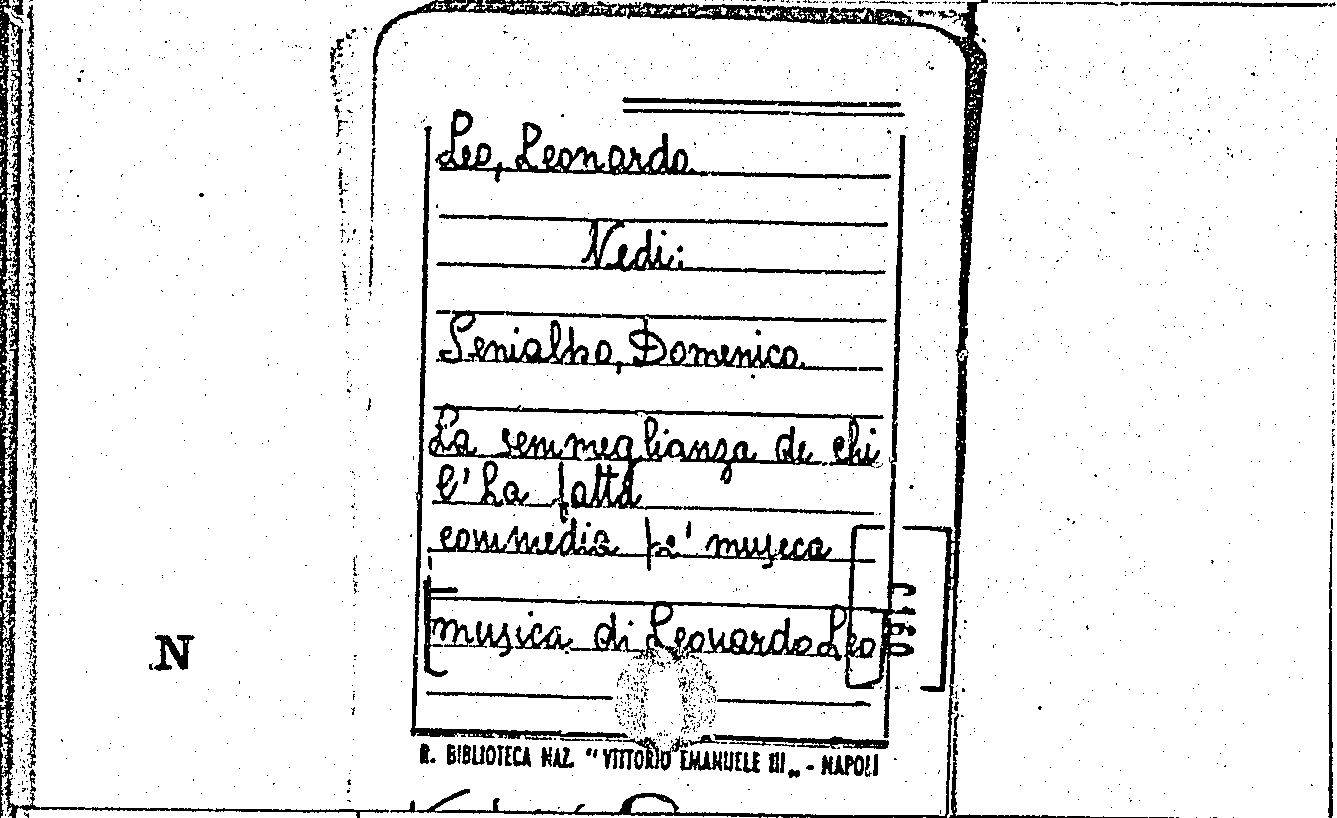 Leo, Leonardo
Vedi:
Senialbo, Domenico
La semmeglianza de chi
l'ha fatta
commedia pe' museca
musica di Leonardo Leo
N
R. BIBLIOTECA NAZ. "VITTORIO EMANUELE III„ - NAPOLI